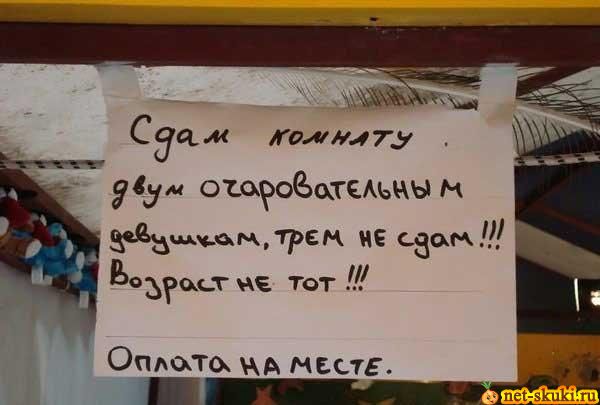 Сдам комнату.
двум очаровательным
девушкам, трем не сдам!!!
Возраст не тот!!!
Оплата на месте.
net-skuki.ru